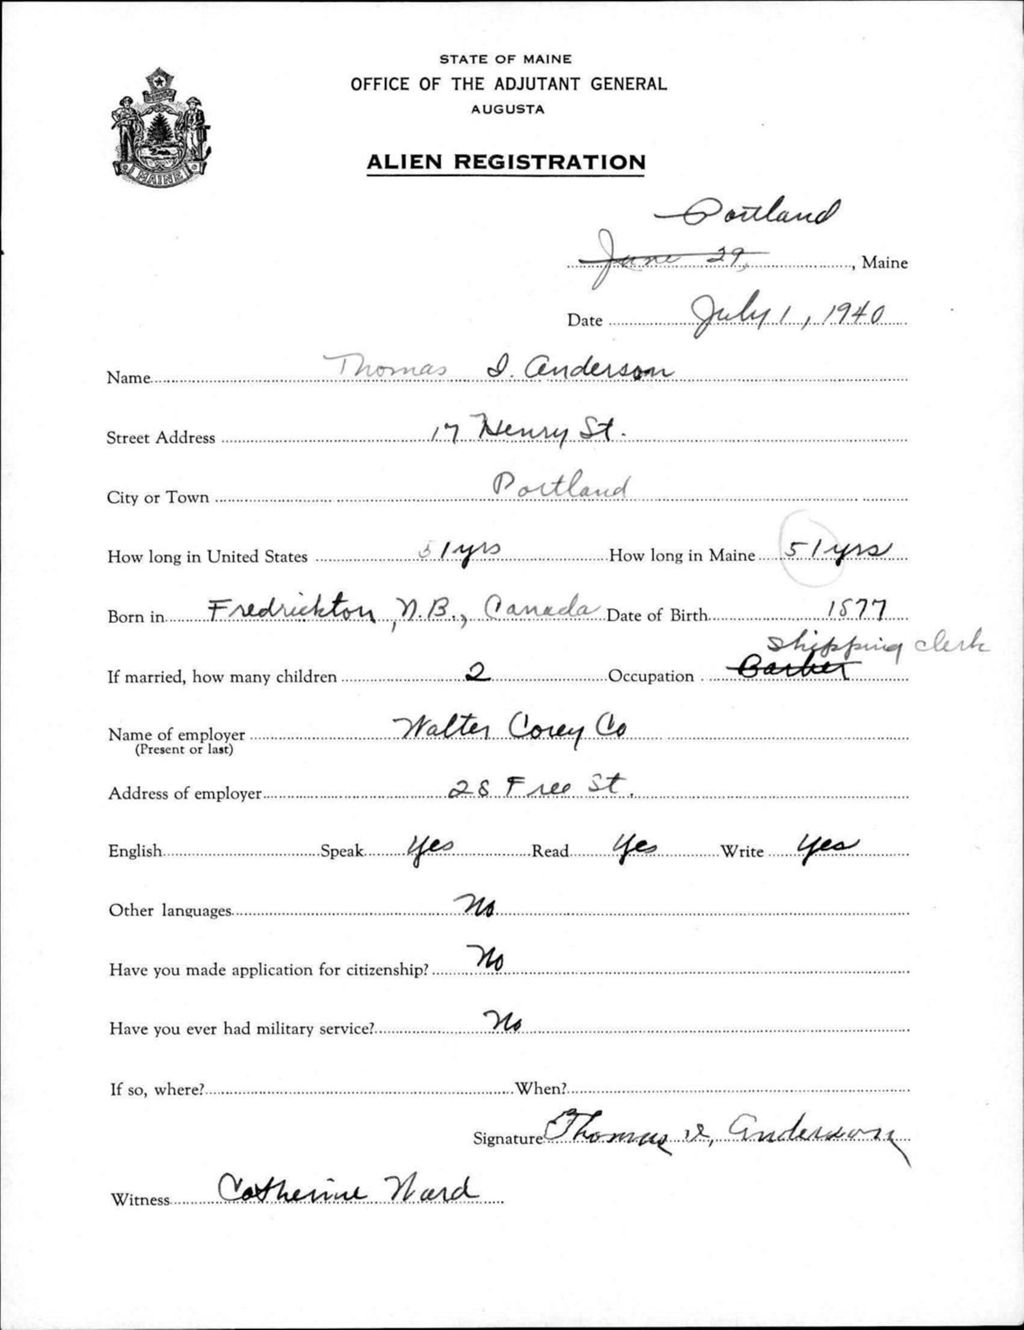 STATE OF MAINE
OFFICE OF THE ADJUTANT GENERAL
AUGUSTA
ALIEN REGISTRATION
MAINE
Portland
June 29, Maine
Date July 1, 1940
Name Thomas I. Anderson
Street Address 17 Henry St.
City or Town Portland
How long in United States 51 yrs How long in Maine 51 yrs
Born in Fredrickton, N.B., Canada Date of Birth 1877
shipping clerk
If married, how many children 2 Occupation Barber
Name of employer Walter Corey Co
(Present or last)
Address of employer 28 Free St.
English Speak Yes Read Yes Write Yes
Other languages No
Have you made application for citizenship? No
Have you ever had military service? No
If so, where? When?
Signature Thomas I. Anderson
Witness Catherine Ward